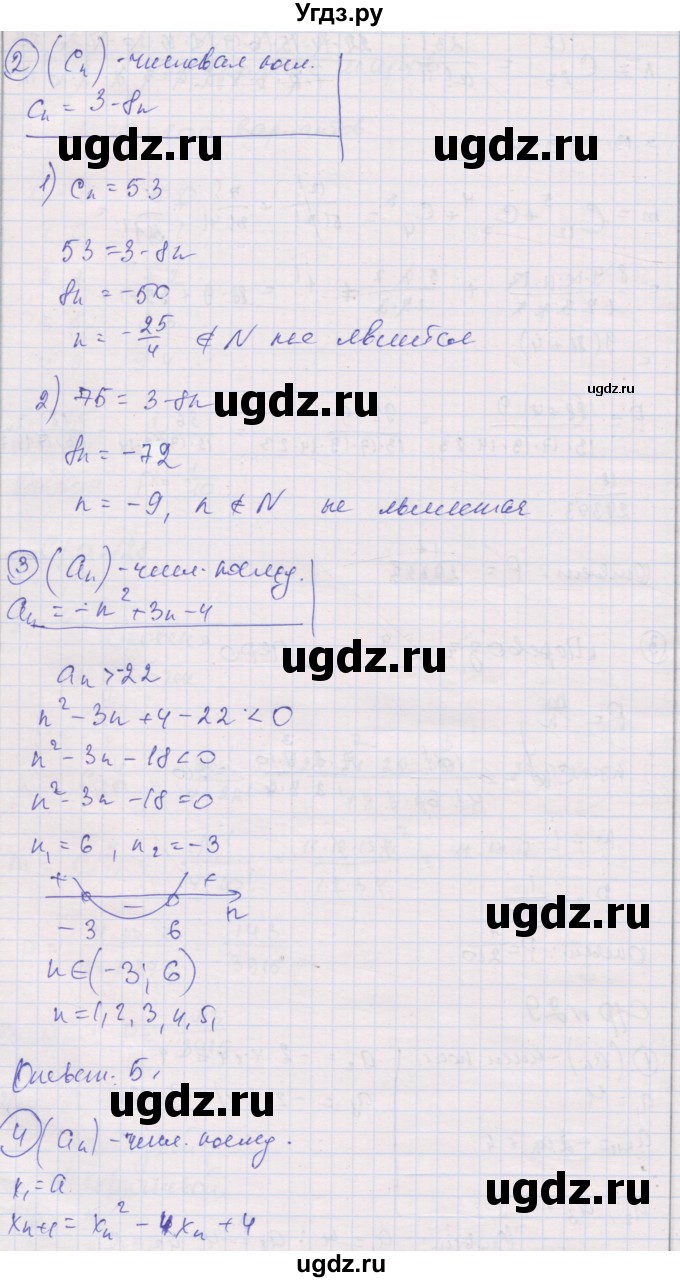 Угдз.ру
2 (Cn) - числовая посл.
Cn = 3 - 8n
ugdz.ru ugdz.ru
1) Cn = 53
53 = 3 - 8n
8n = -50
n = -25/4 ∉ N не явлится
ugdz.ru
2) 75 = 3 - 8n
ugdz.ru
8n = -72
n = -9, n ∉ N не является
3 (an) - числ. послед.
an = -n² + 3n - 4
ugdz.ru
an > -22
n² - 3n + 4 - 22 < 0
n² - 3n - 18 < 0
n² - 3n - 18 = 0
n₁ = 6, n₂ = -3
+ - + n
-3 6
ugdz.ru
n ∈ (-3; 6)
n = 1, 2, 3, 4, 5,
Ответ: 5.
ugdz.ru
4 (an) - числ. послед.
x₁ = a
ugdz.ru
xn+1 = xn² - 4xn + 4
ugdz.ru